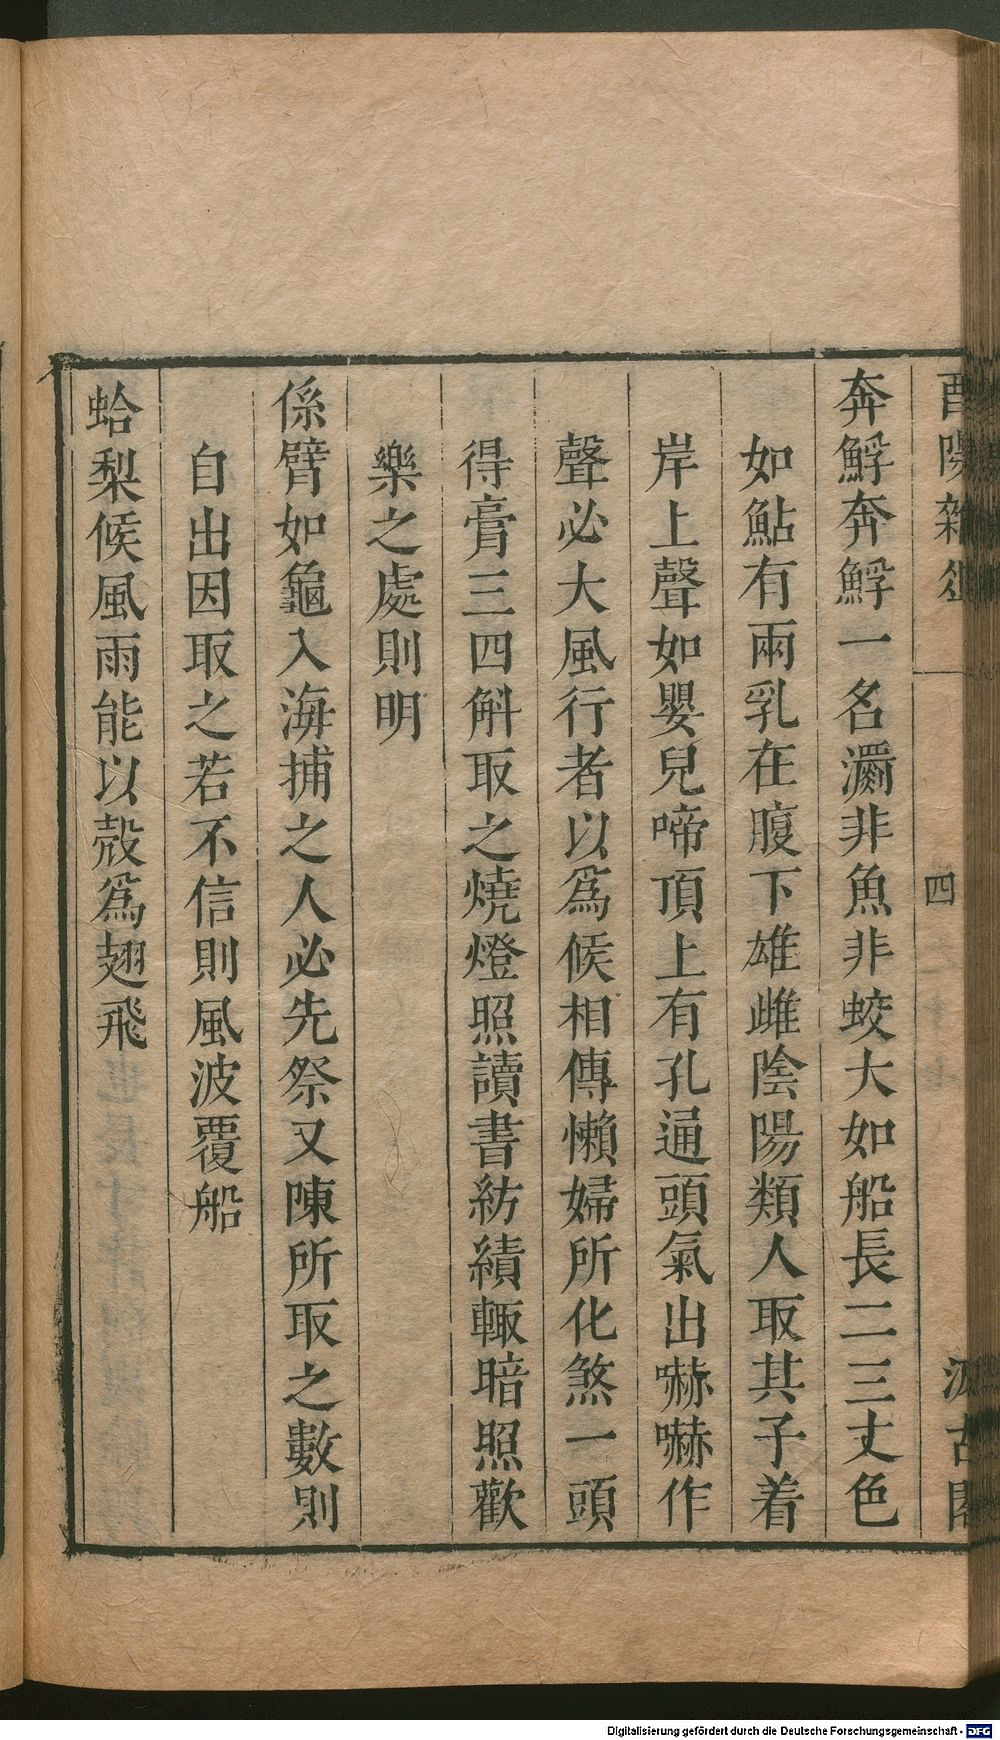 酉陽雜俎
四
汲古閣
奔䱐奔䱐一名瀱非魚非蛟大如船長二三丈色
如鮎有兩乳在腹下雄雌陰陽類人取其子着
岸上聲如嬰兒啼頂上有孔通頭氣出嚇嚇作
聲必大風行者以爲候相傳懶婦所化煞一頭
得膏三四斛取之燒燈照讀書紡績輙暗照歡
樂之處則明
係臂如龜入海捕之人必先祭又陳所取之數則
自出因取之若不信則風波覆船
蛤梨候風雨能以殼爲翅飛
Digitalisierung gefördert durch die Deutsche Forschungsgemeinschaft - DFG